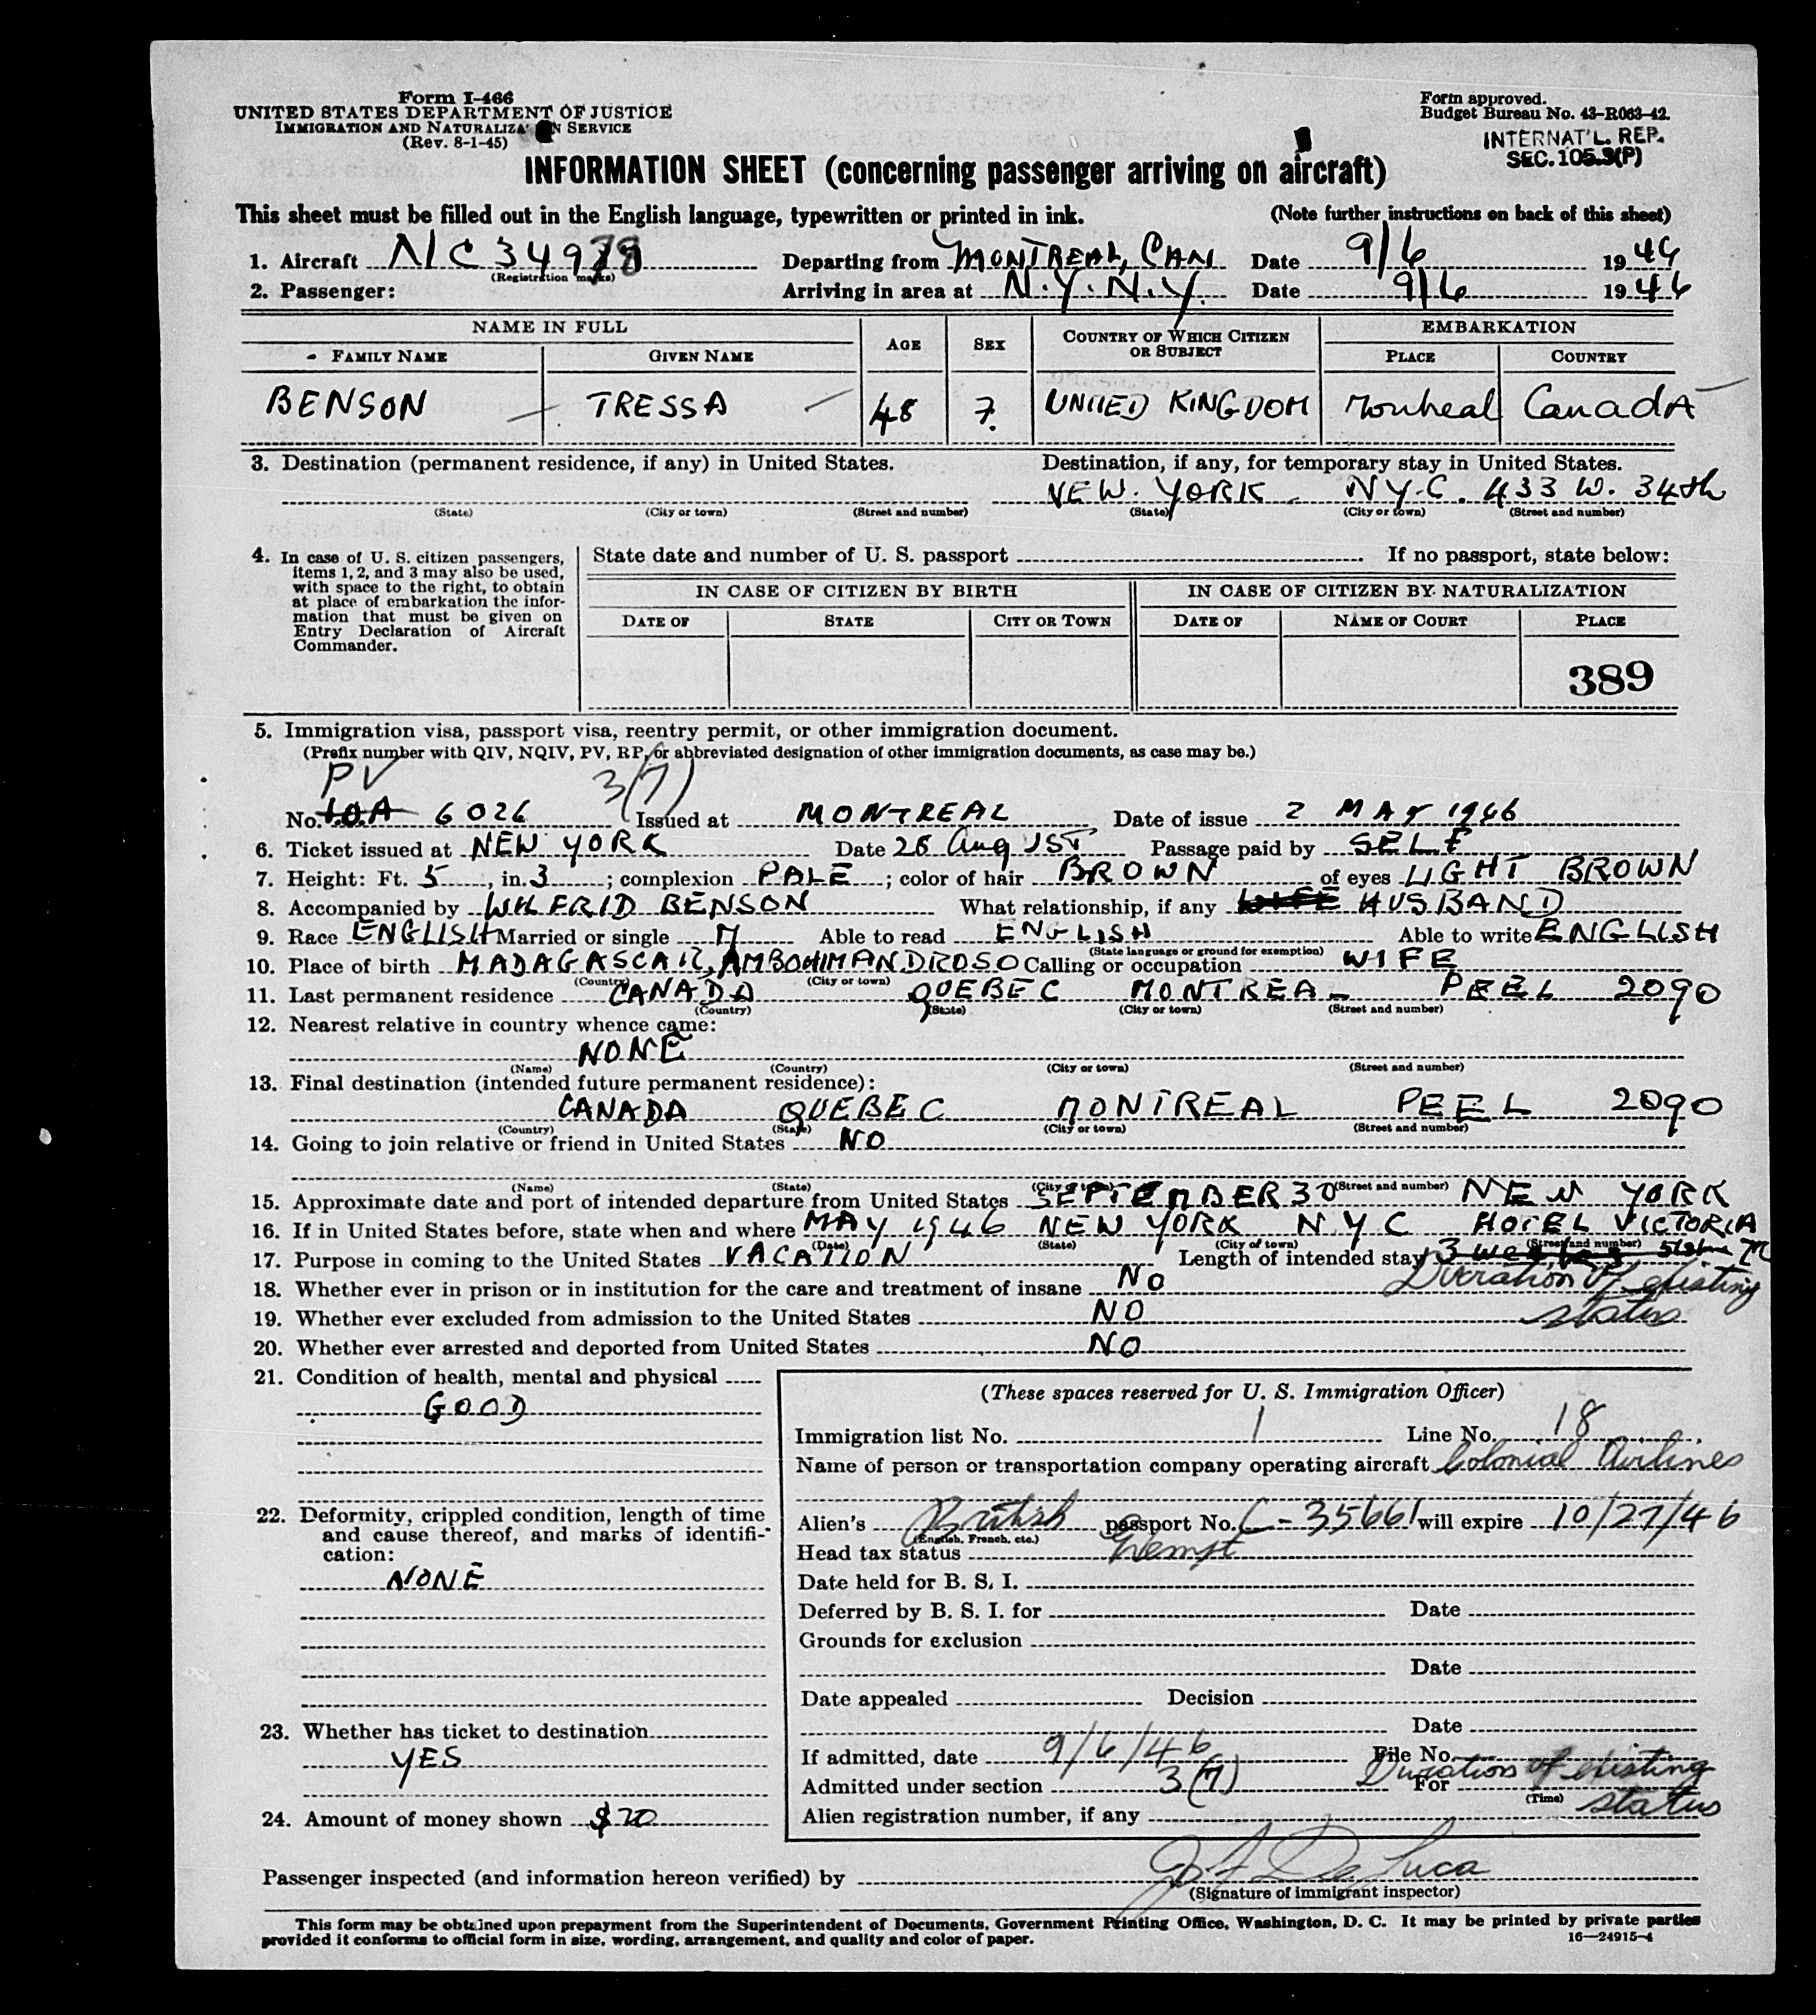 Form I-466
UNITED STATES DEPARTMENT OF JUSTICE
IMMIGRATION AND NATURALIZATION SERVICE
(Rev. 8-1-45)
Form approved.
Budget Bureau No. 43-R063-42.
INTERNAT'L. REP.
SEC. 105.3(P)
INFORMATION SHEET (concerning passenger arriving on aircraft)
This sheet must be filled out in the English language, typewritten or printed in ink. (Note further instructions on back of this sheet)
1. Aircraft NC 349 Departing from MONTREAL, CAN Date 9/6 1946
(Registration marks)
2. Passenger: Arriving in area at N.Y. N.Y. Date 9/6 1946
NAME IN FULL AGE SEX COUNTRY OF WHICH CITIZEN OR SUBJECT EMBARKATION
FAMILY NAME GIVEN NAME PLACE COUNTRY
BENSON TRESSA 48 F. UNITED KINGDOM Montreal Canada
3. Destination (permanent residence, if any) in United States. Destination, if any, for temporary stay in United States.
NEW YORK - N.Y.C. 433 W. 34th
(State) (City or town) (Street and number) (State) (City or town) (Street and number)
4. In case of U. S. citizen passengers, items 1, 2, and 3 may also be used, with space to the right, to obtain at place of embarkation the information that must be given on Entry Declaration of Aircraft Commander.
State date and number of U. S. passport If no passport, state below:
IN CASE OF CITIZEN BY BIRTH IN CASE OF CITIZEN BY NATURALIZATION
DATE OF STATE CITY OR TOWN DATE OF NAME OF COURT PLACE
389
5. Immigration visa, passport visa, reentry permit, or other immigration document.
(Prefix number with QIV, NQIV, PV, RP, or abbreviated designation of other immigration documents, as case may be.)
PV 3(7)
No. 6026 Issued at MONTREAL Date of issue 2 MAY 1946
6. Ticket issued at NEW YORK Date 26 Aug Passage paid by SELF
7. Height: Ft. 5, in. 3; complexion PALE; color of hair BROWN of eyes LIGHT BROWN
8. Accompanied by WILFRID BENSON What relationship, if any WIFE HUSBAND
9. Race ENGLISH Married or single M Able to read ENGLISH Able to write ENGLISH
(State language or ground for exemption)
10. Place of birth MADAGASCAR, AMBOHIMANDROSO Calling or occupation WIFE
(Country) (City or town)
11. Last permanent residence CANADA QUEBEC MONTREAL PEEL 2090
(Country) (State) (City or town) (Street and number)
12. Nearest relative in country whence came:
NONE
(Name) (Country) (City or town) (Street and number)
13. Final destination (intended future permanent residence):
CANADA QUEBEC MONTREAL PEEL 2090
(Country) (State) (City or town) (Street and number)
14. Going to join relative or friend in United States NO
(Name) (State) (City or town) (Street and number)
15. Approximate date and port of intended departure from United States SEPTEMBER 30 NEW YORK
16. If in United States before, state when and where MAY 1946 NEW YORK NYC HOTEL VICTORIA
(Date) (State) (City or town) (Street and number)
17. Purpose in coming to the United States VACATION Length of intended stay 3 weeks
Duration of existing status
18. Whether ever in prison or in institution for the care and treatment of insane NO
19. Whether ever excluded from admission to the United States NO
20. Whether ever arrested and deported from United States NO
21. Condition of health, mental and physical
GOOD
22. Deformity, crippled condition, length of time and cause thereof, and marks of identification:
NONE
23. Whether has ticket to destination
YES
24. Amount of money shown $70
(These spaces reserved for U. S. Immigration Officer)
Immigration list No. 1 Line No. 18
Name of person or transportation company operating aircraft Colonial Airlines
Alien's British passport No. C-35661 will expire 10/27/46
(English, French, etc.)
Head tax status Exempt
Date held for B. S. I.
Deferred by B. S. I. for Date
Grounds for exclusion
Date
Date appealed Decision
Date
If admitted, date 9/6/46 File No.
Admitted under section 3(7) For Duration of existing status
(Time)
Alien registration number, if any
Passenger inspected (and information hereon verified) by J F De Luca
(Signature of immigrant inspector)
This form may be obtained upon prepayment from the Superintendent of Documents, Government Printing Office, Washington, D. C. It may be printed by private parties
provided it conforms to official form in size, wording, arrangement, and quality and color of paper. 16—24915-4